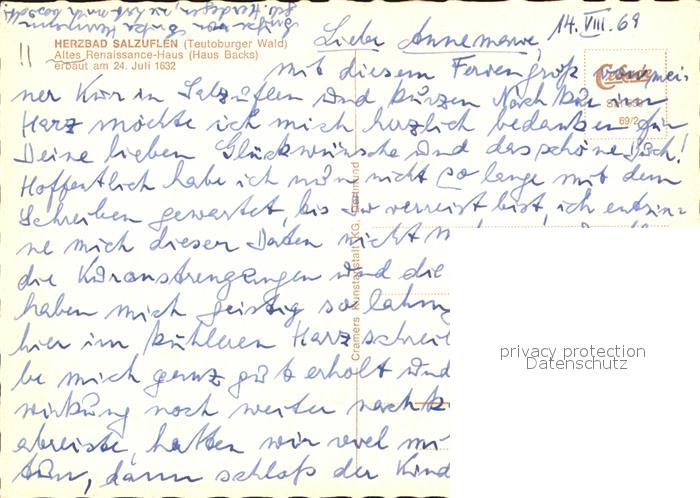 14. VIII. 69
Liebe Annemarie,
HERZBAD SALZUFLEN (Teutoburger Wald)
Altes Renaissance-Haus (Haus Backs)
erbaut am 24. Juli 1632
!!
mit diesem Feriengruß von mei-
ner Kur in Salzuflen und kurzen Nachkur im
Harz möchte ich mich herzlich bedanken für
Deine lieben Glückwünsche und das schöne Buch!
Hoffentlich habe ich nun nicht so lange mit dem
Schreiben gewartet, bis Du verreist bist, ich entsin-
ne mich dieser Daten nicht
die Kuranstrengungen und die
haben mich geistig so lahm
hier im kühleren Harz schrei
be mich ganz gut erholt und
wirkung noch weiter nach
abreiste, hatten wir viel mi
tun, dann schloß der Kind
Cramers Kunstanstalt KG, Dortmund
69/2
privacy protection
Datenschutz